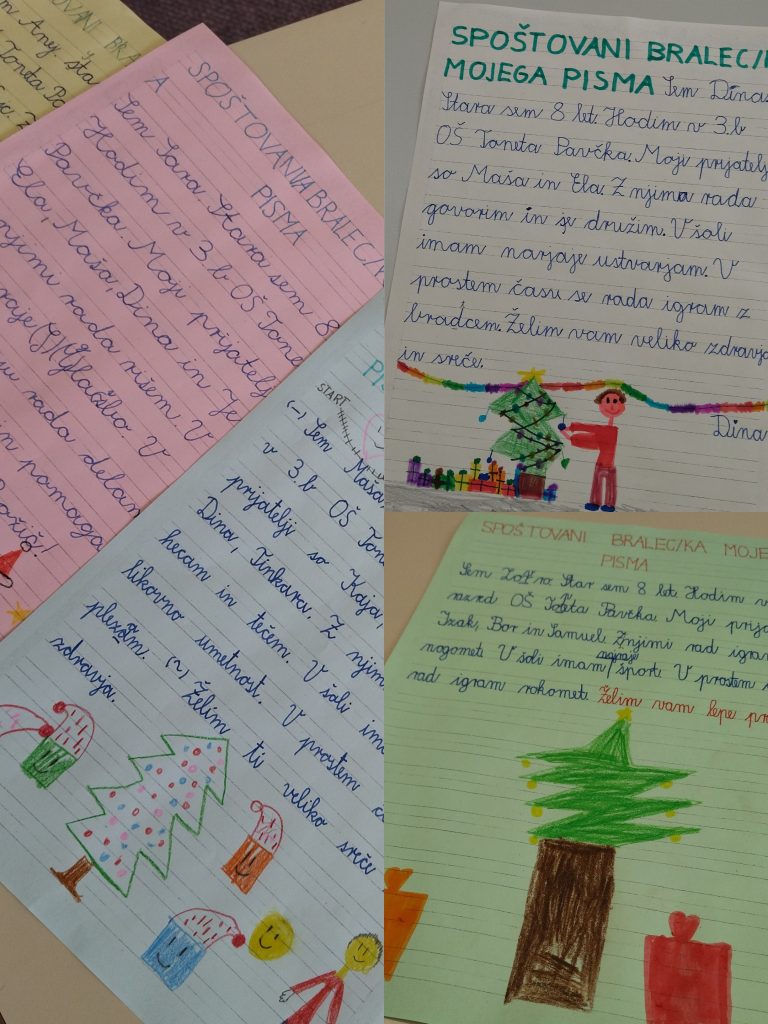 OVANI BRA
m Any. sta
Toneta Pa
A SPOŠTOVANI/A BRALEC/K
PISMA
Sem Sara. Stara sem 8
Hodim v 3.b OŠ Tone
Pavčka. Moji prijatelj
Ela, Maša, Dina in Je
njimi rada rišem. V
raje (G) Glasbo. V
rada delam
in pomaga
Božič!
PI
START
(~) Sem Maša
v 3.b OŠ Tone
prijatelji so Kaja,
Dina, Tinkara. Z njim
hecam in tečem. V šoli im
likovno umetnost. V prostem č
plezam. (~) Želim ti veliko sreče
zdravja.
SPOŠTOVANI BRALEC/K
MOJEGA PISMA Sem Dina.
Stara sem 8 let. Hodim v 3.b
OŠ Toneta Pavčka. Moji prijatelj
so Maša in Ela. Z njima rada
govorim in se družim. V šoli
imam narjaje ustvarjam. V
prostem času se rada igram z
bradcem. Želim vam veliko zdravja
in sreče.
Dina
SPOŠTOVANI BRALEC/KA MOJE
PISMA
Sem Star sem 8 let. Hodim v
razred OŠ Toneta Pavčka. Moji prija
Izak, Bor in Samuel. Z njimi rad igra
nogomet. V šoli imam najraje šport. V prostem
rad igram rokomet. Želim vam lepe pr